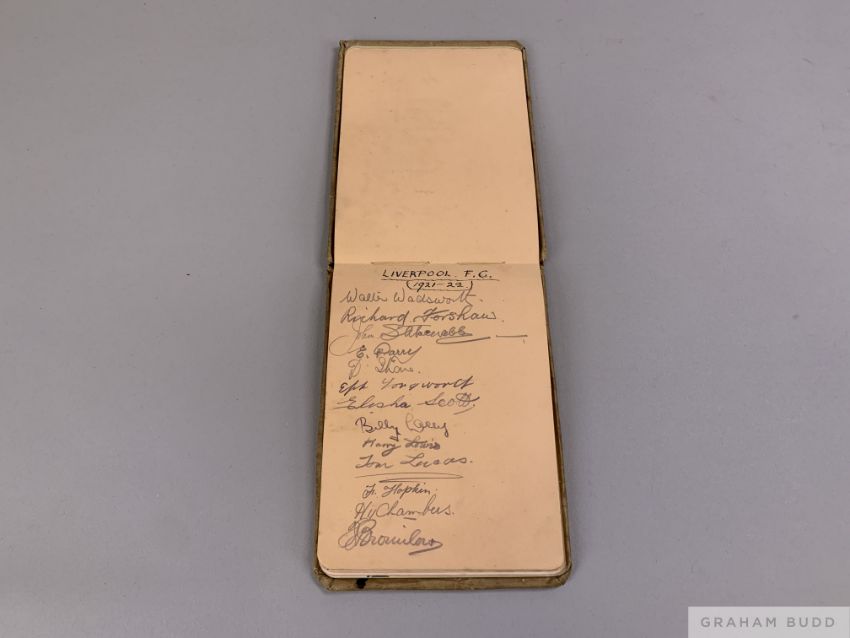 LIVERPOOL. F.C.
(1921-22)
Walter Wadsworth.
Richard Forshaw.
John
E. Parry
D. Shone.
Eph Longworth
Elisha Scott.
Billy Lacey
Harry Lewis
Tom Lucas.
F. Hopkin.
Hy Chambers.
Bromilow
GRAHAM BUDD